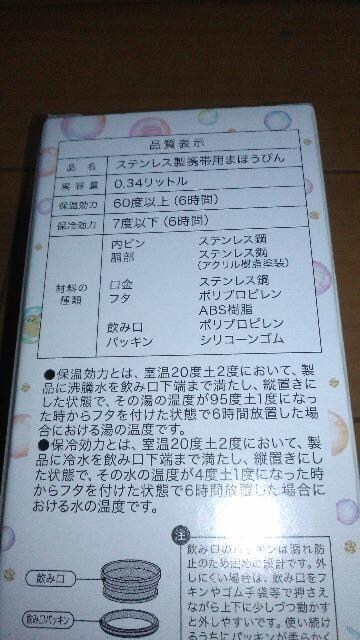 品質表示
品名 ステンレス製携帯用まほうびん
実容量 0.34リットル
保温効力 60度以上(6時間)
保冷効力 7度以下(6時間)
材料の種類
内ビン ステンレス鋼
胴部 ステンレス鋼
(アクリル樹脂塗装)
口金 ステンレス鋼
フタ ポリプロピレン
ABS樹脂
飲み口 ポリプロピレン
パッキン シリコーンゴム
●保温効力とは、室温20度土2度において、製
品に沸騰水を飲み口下端まで満たし、縦置きに
した状態で、その湯の温度が95度土1度になっ
た時からフタを付けた状態で6時間放置した場
合における湯の温度です。
●保冷効力とは、室温20度土2度において、製
品に冷水を飲み口下端まで満たし、縦置きにし
た状態で、その水の温度が4度土1度になった時
からフタを付けた状態で6時間放置した場合に
おける水の温度です。
注
飲み口のパッキンは漏れ防
止のため固めの設計です。外
しにくい場合は、飲み口をフ
キンやゴム手袋等で押さえ
ながら上下に少しづつ動かす
と外しやすいです。使い続け
るうちにパッキンが柔らかく
飲み口
飲み口パッキン